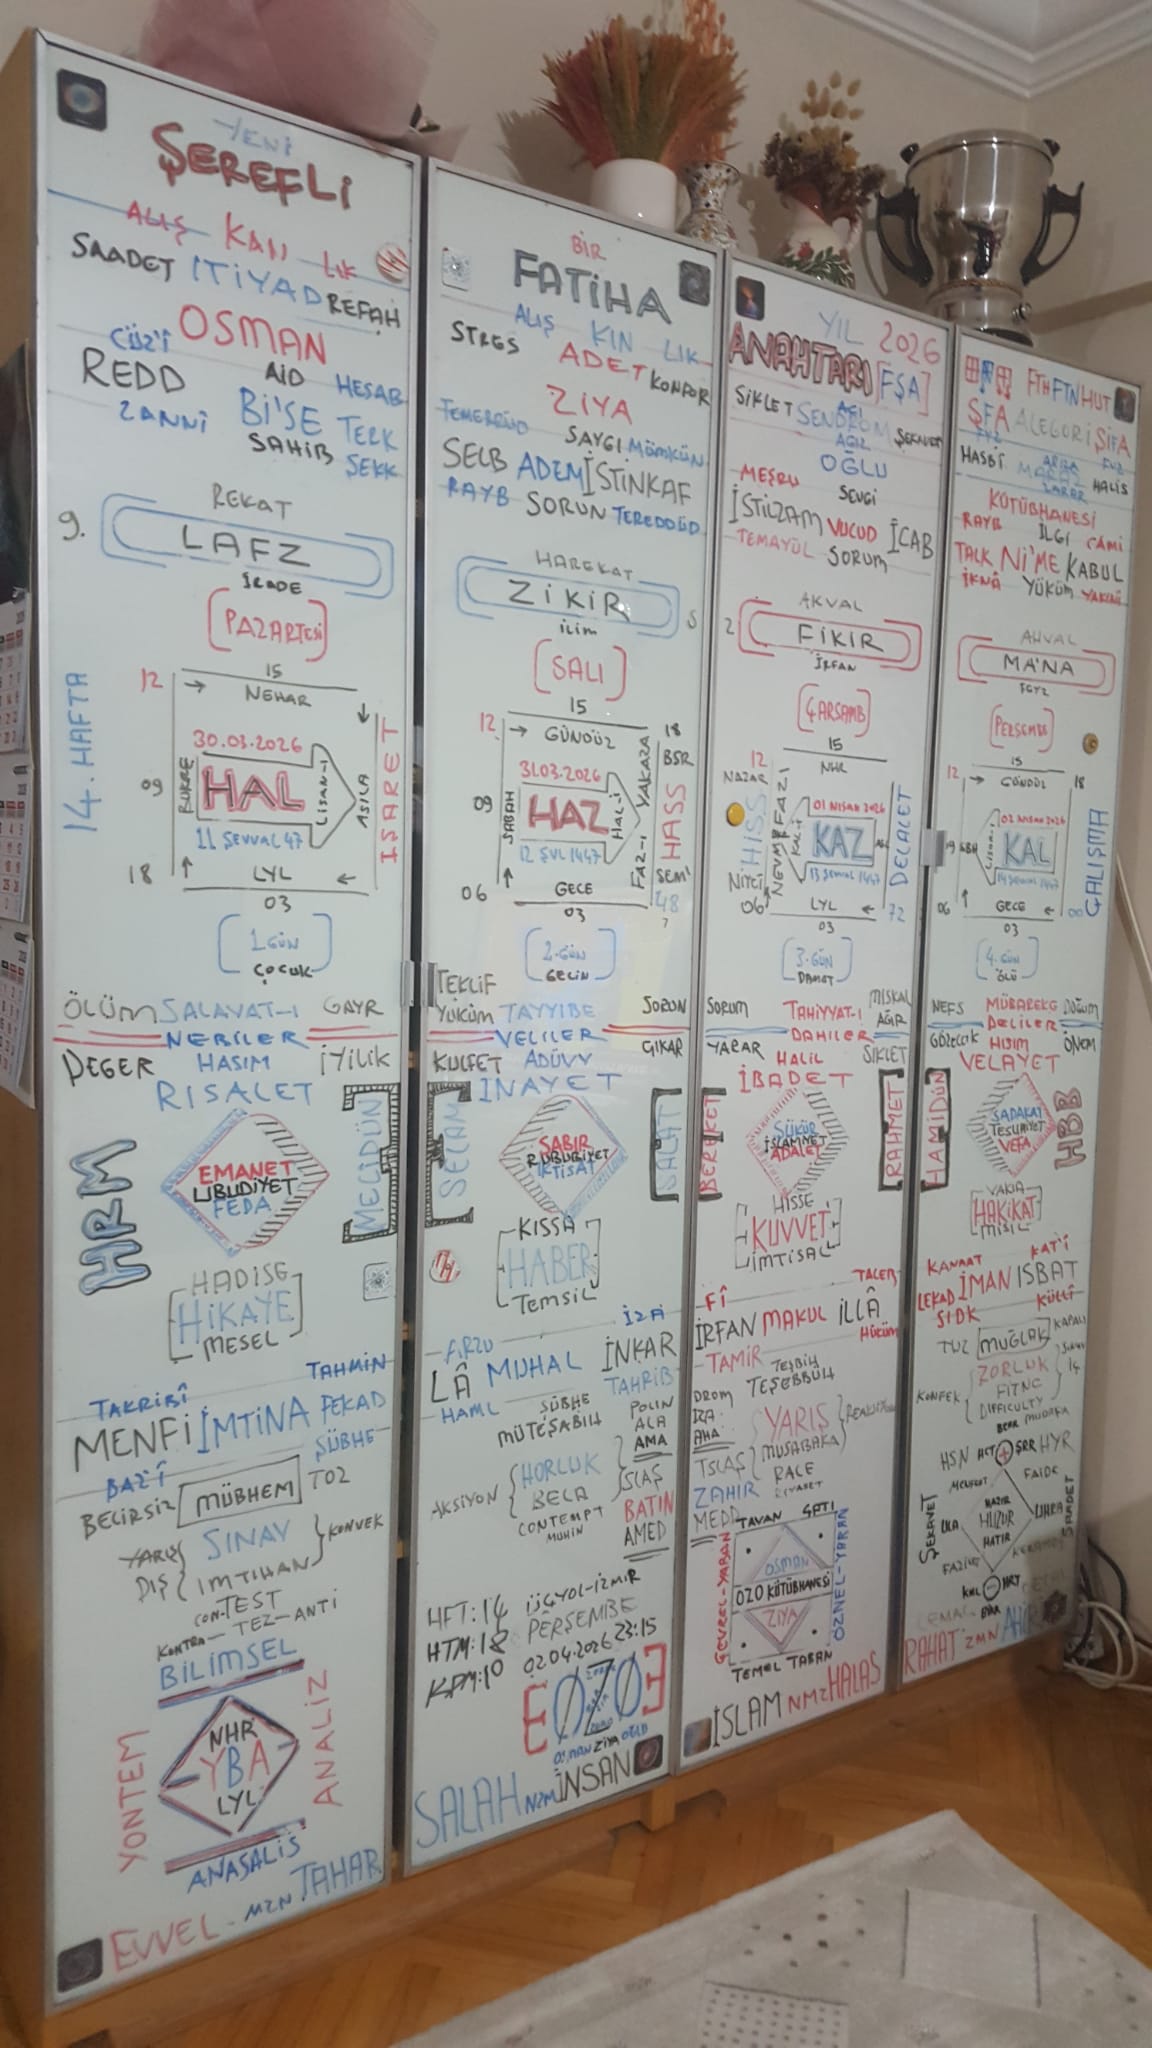 YENİ
ŞEREFLİ
ALIŞ KAN LIK
SAADET İTİYAD REFAH
OSMAN
CÜZ'Î AİD HESAB
REDD Bİ'SE TERK
ZANNİ SAHİB ŞEKK
REKAT
9. LAFZ
İRADE
[PAZARTESİ]
14. HAFTA
12 15
NEHAR
30.03.2026
09 BUKRE HAL LİSAN-I ASILA İŞARET
11 ŞEVVAL 47
18 LYL
03
[1.GÜN
ÇOCUK]
ÖLÜM SALAVAT-I GAYR
NEBİLER
DEĞER HASIM İYİLİK
RISALET
HRM
EMANET
UBUDİYET
FEDA
MECİDÜN
HADİSE
[HİKAYE]
MESEL
TAKRİBÎ TAHMİN
MENFİ İMTİNA FEKAD
BAZ'Î ŞÜBHE
BELİRSİZ [MÜBHEM] TOZ
YARIŞ SINAY KONVEK
DIŞ İMTİHAN
CON-TEST
KONTRA-TEZ-ANTİ
BİLİMSEL
YÖNTEM
NHR
YBA
LYL
ANALİZ
ANASALİS
EVVEL - MZN TAHAR
BİR
FATİHA
ALIŞ KIN LIK
STRES ADET KONFOR
ZİYA
TEMERRÜD SAYGI MÜMKÜN
SELB ADEM İSTİNKAF
RAYB SORUN TEREDDÜD
HAREKAT
ZİKİR
İLİM
[SALI]
12 15 18
GÜNDÜZ BSR
31.03.2026
09 SABAH HAZ HAL-İ FAZ-I YAKAZA HASS
12 ŞVL 1447
SEM'
06 GECE 48
03 7
[2.GÜN
GELİN]
TEKLİF
YÜKÜM TAYYIBE SORUN
VELİLER
KÜLFET ADÜVV ÇIKAR
İNAYET
SELAM
SABIR
RUBUBİYET
İKTİSAT
SALAT
KISSA
[HABER]
TEMSİL
ARZU İZAİ
LÂ MUHAL İNKAR
HAML TAHRİB
ŞÜBHE
MÜTEŞABİH
POLIN
ALA
AMA
AKSİYON HORLUK SLAŞ
BELA
CONTEMPT BATIN
MUHİN AMED
HFT:14 ÜÇYOL-İZMİR
HTM:18 PERŞEMBE
KPM:10 02.04.2026 23:15
EOZOE
OSMAN ZİYA OĞLU
SALAH NZM İNSAN
YIL 2026
ANAHTARI [FŞA]
SİKLET SENDROM ŞEKAVET
AĞIL
OĞLU
MEŞRU SEVGİ
İSTİLZAM VUCUD İCAB
TEMAYÜL SORUM
AKVAL
2 FİKİR
İRFAN
[ÇARŞAMB]
12 15
NAZAR NHR
01 NİSAN 2026
HİSS NEVM FAZ-I KAL-İ KAZ DELALET
13 ŞEVVAL 1447
NİYCİ
06 LYL 72
03
[3.GÜN
DAMAT]
SORUM TAHİYYAT-I MISKAL
AĞIR
DAHİLER
YARAR HALİL SİKLET
İBADET
BEREKET
ŞÜKÜR
İSLAMİYET
ADALET
RAHMET
HİSSE
[KUVVET]
İMTİSAL
FÎ TALEB
İRFAN MAKUL İLLÂ
TAMİR HÜKÜM
TEŞBİH
TEŞEBBÜH
DROM
IRA
AHA YARIŞ REAKSİYON
TSLAŞ MUSABAKA
ZAHIR RACE
MEDD RİYASET
TAVAN ÇATI
ÇEVREL-YABAN
OSMAN
OZO KÜTÜBHANESİ
ZİYA
ÖZNEL-YARAN
TEMEL TABAN
İSLAM NMZ HALAS
FTH FTN HUT
ŞFA ALEGORİ ŞİFA
HASBİ MARAZ HALİS
ZARAR
KÜTÜBHANESİ
RAYB İLGİ CAMİ
TALK Nİ'ME KABUL
İKNÂ YÜKÜM YAKÎNÎ
AHVAL
MA'NA
FEYZ
[PERŞEMBE]
12 15 18
GÜNDÜZ
02 NİSAN 2026
LİSAN-I KAL ÇALIŞMA
14 ŞEVVAL 1447
06 GECE 00
03
[4.GÜN
ÖLÜ]
NEFS MÜBAREKE DOĞUM
DELİLER
GÖRECEK HISIM ÖNEM
VELAYET
HAMİDÜN
SADAKAT
TESLİMİYET
VEFA
HBB
VAKIA
[HAKİKAT]
MİSİL
KANAAT KAT'Î
LEKAD İMAN ISBAT
SIDK KÜLLÎ
TUZ [MUĞLAK] KAPALI
ZORLUK
KONFEK FİTNE İÇ
DIFFICULTY
HSN HCT + ŞRR HYR
MENFEAT FAİDE
ŞEKAVET ULA HAZIR UHRA SAADET
HUZUR
HATIR
FAZİLET
KHL - HRT
CEMAL
RAHAT ZMN AHİR